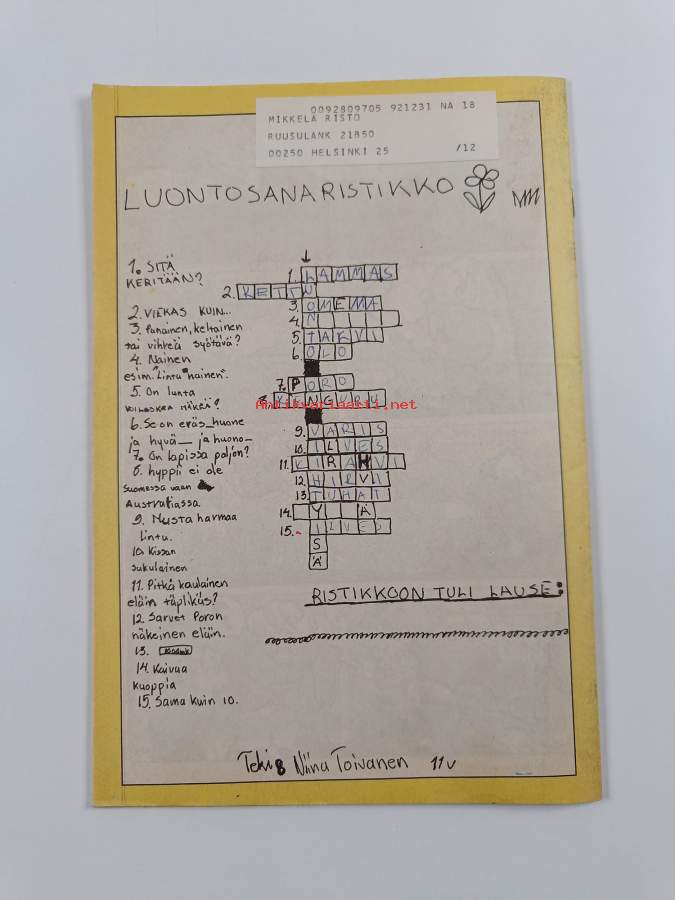 0092809705 921231 NA 18
MIKKELÄ RISTO
RUUSULANK 21B50
00250 HELSINKI 25 /12
LUONTOSANARISTIKKO
1. SITÄ
KERITÄÄN?
2. VIEKAS KUIN...
3. Punainen, keltainen
tai vihreä syötävä?
4. Nainen
esim. "Lintu"nainen".
5. On lunta
6. Se on eräs_huone
ja hyvä_ ja huono_
7. On lapissa paljon?
8. hyppii ei ole
Suomessa vaan
Australiassa.
9. Musta harmaa
Lintu.
10. Kissan
sukulainen
11. Pitkä kaulainen
eläin täplikäs?
12. Sarvet Poron
näköinen eläin.
13.
14. Kaivaa
kuoppia
15. Sama kuin 10.
1. LAMMAS
2. KETTU
3. OMENA
4. N
5. TALVI
6. OLO
7. PORO
8. KENGURU
antikvariaatti.net
9. VARIS
10. ILVES
11. KIRAHVI
12. HIRVI
13. TUHAT
14. Y Ä
15. ILVES
S
Ä
RISTIKKOON TULI LAUSE:
Teki: Niina Toivanen 11v